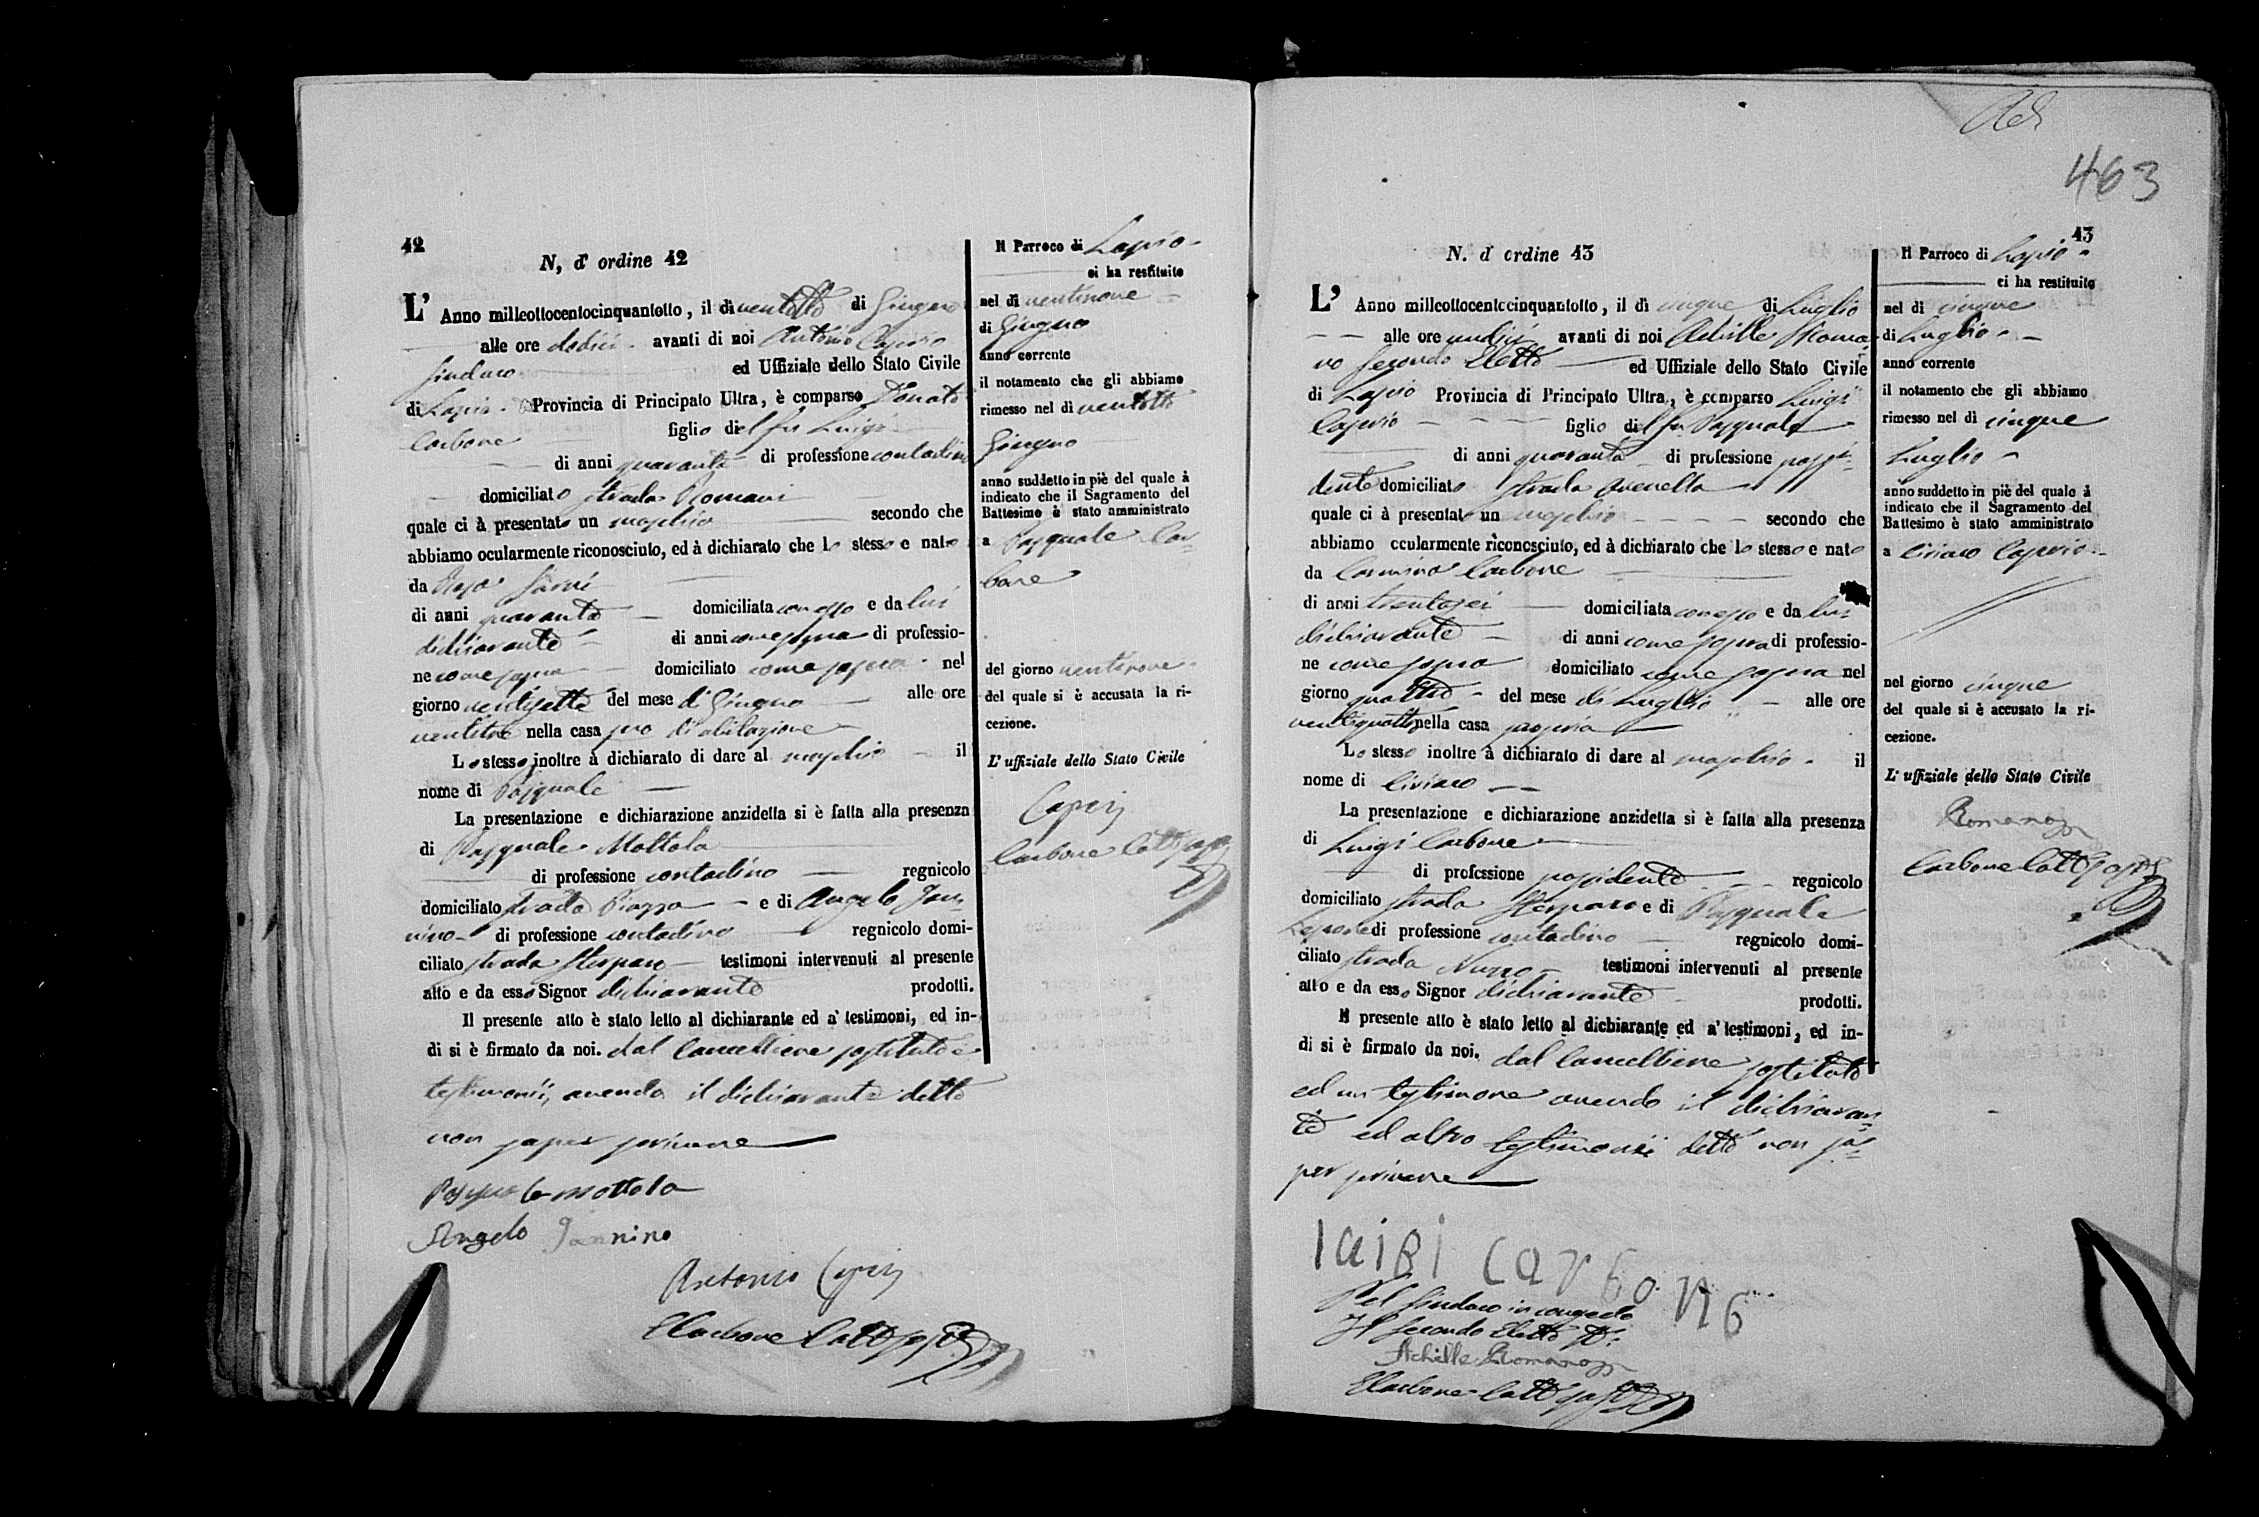 42
N, d' ordine 42
L' Anno milleottocentocinquantotto, il dì ventotto di Giugno
alle ore dodici avanti di noi Antonio Caprio
Sindaco ed Uffiziale dello Stato Civile
di Lapio Provincia di Principato Ultra, è comparso Donato
Carbone figlio del fu Luigi
di anni quaranta di professione contadino
domiciliato strada Romani
quale ci à presentato un maschio secondo che
abbiamo ocularmente riconosciuto, ed à dichiarato che lo stesso e nato
da Rosa
di anni quaranta domiciliata con esso e da lui
dichiarante di anni come sopra di professio-
ne come sopra domiciliato come sopra nel
giorno ventisette del mese di Giugno alle ore
ventitre nella casa sua di abitazione
Lo stesso inoltre à dichiarato di dare al maschio il
nome di Pasquale
La presentazione e dichiarazione anzidetta si è fatta alla presenza
di Pasquale Mottola
di professione contadino regnicolo
domiciliato strada Piazza e di Angelo Jan
nino di professione contadino regnicolo domi-
ciliato strada testimoni intervenuti al presente
atto e da esso Signor dichiarante prodotti.
Il presente atto è stato letto al dichiarante ed a' testimoni, ed in-
di si è firmato da noi. dal Cancelliere sostituto e
testimonii, avendo il dichiarante detto
non saper scrivere
Pasquale Mottola
Angelo Iannino
Antonio Caprio
Carbone
Il Parroco di Lapio
ci ha restituito
nel dì ventinove
di Giugno
anno corrente
il notamento che gli abbiamo
rimesso nel dì ventotto
Giugno
anno suddetto in piè del quale à
indicato che il Sagramento del
Battesimo è stato amministrato
a Pasquale Car-
bone
del giorno ventinove
del quale si è accusata la ri-
cezione.
L' uffiziale dello Stato Civile
Caprio
Carbone
463
43
N. d' ordine 43
L' Anno milleottocentocinquantotto, il dì cinque di Luglio
alle ore undici avanti di noi Achille Roma-
no Secondo Eletto ed Uffiziale dello Stato Civile
di Lapio Provincia di Principato Ultra, è comparso Luigi
Caprio figlio del fu Pasquale
di anni quaranta di professione possi-
dente domiciliato strada
quale ci à presentato un maschio secondo che
abbiamo ocularmente riconosciuto, ed à dichiarato che lo stesso e nato
da Carmina Carbone
di anni trentasei domiciliata con esso e da lui
dichiarante di anni come sopra di professio-
ne come sopra domiciliato come sopra nel
giorno quattro del mese di Luglio alle ore
ventiquattro nella casa propria
Lo stesso inoltre à dichiarato di dare al maschio il
nome di Ciriaco
La presentazione e dichiarazione anzidetta si è fatta alla presenza
di Luigi Carbone
di professione possidente regnicolo
domiciliato strada e di Pasquale
Lepore di professione contadino regnicolo domi-
ciliato strada testimoni intervenuti al presente
atto e da esso Signor dichiarante prodotti.
Il presente atto è stato letto al dichiarante ed a' testimoni, ed in-
di si è firmato da noi. dal Cancelliere sostituto
ed un testimone avendo il dichiaran
te ed altro testimonii detto non sa-
per scrivere
luigi carbone
Pel Sindaco in congedo
Il Secondo Eletto
Achille Romano
Carbone
Il Parroco di Lapio
ci ha restituito
nel dì cinque
di Luglio
anno corrente
il notamento che gli abbiamo
rimesso nel dì cinque
Luglio
anno suddetto in piè del quale à
indicato che il Sagramento del
Battesimo è stato amministrato
a Ciriaco Caprio
nel giorno cinque
del quale si è accusato la ri-
cezione.
L' uffiziale dello Stato Civile
Romano
Carbone